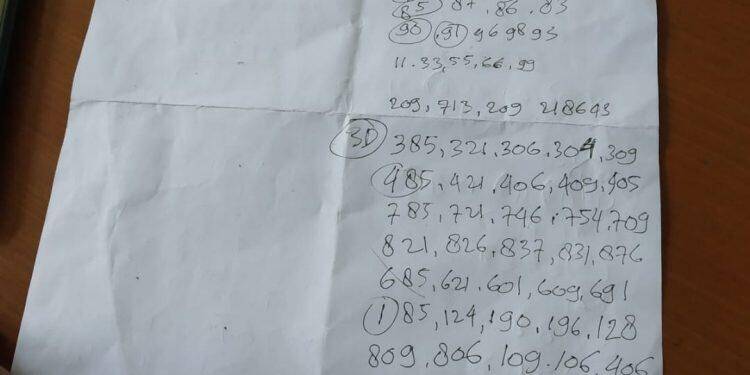 85 87.86.83
90 .91 969893
11.33,55,66,99
209,713,209 218643
3D 385,321.306.304,309
485,421.406,409,405
785,721,746.754,709
821,826,837,831,876
685,621.601,609,691
185,124,190.196.128
809.806,109.106,406